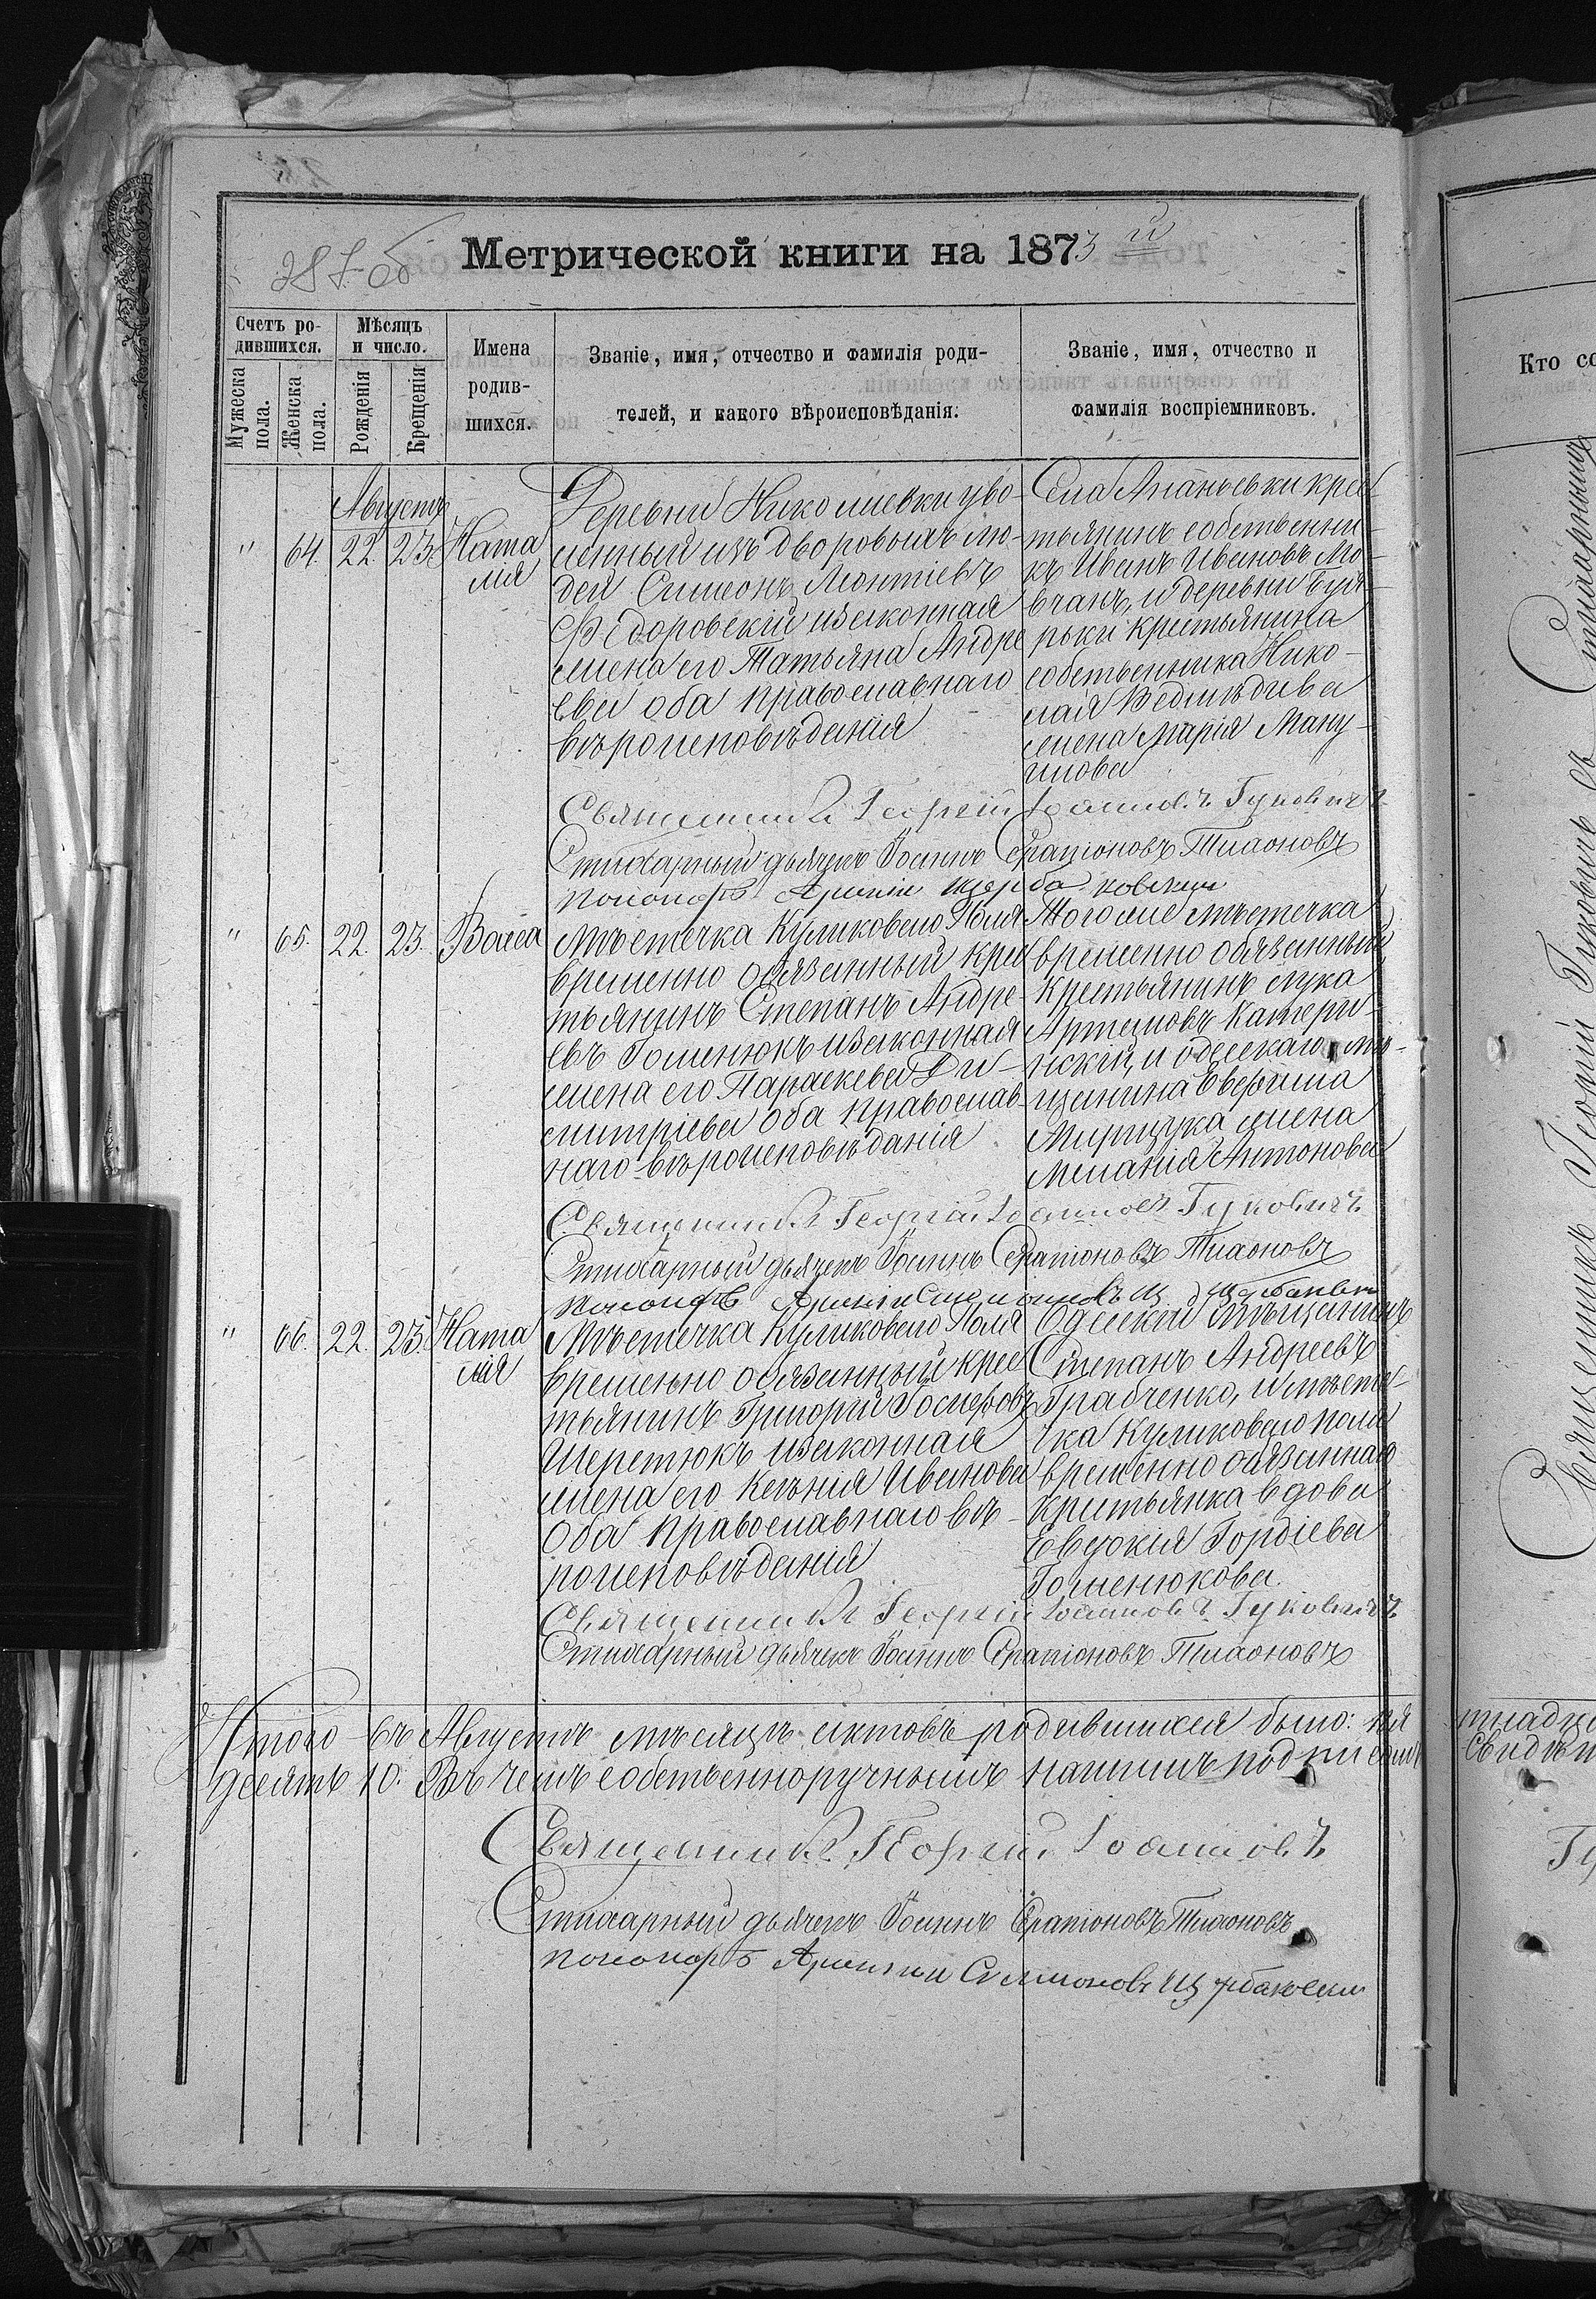 287 об
Метрической книги на 1873 й
Счетъ ро-
дившихся.
Мужеска
пола.
Женска
пола.
Мѣсяцъ
и число.
Рожденія
Крещенія
Имена
родив-
шихся.
Званіе, имя, отчество и фамилія роди-
телей, и какого вѣроисповѣданія.
Званіе, имя, отчество и
фамилія воспріемниковъ.
Кто со
Августъ
" 64. 22. 23. Ната
лія
Деревни Николаевки уво-
ленный изъ дворовыхъ лю-
дей Симеонъ Леонтіевъ
Ѳедоровскій и законная
жена его Татьяна Андре
ева оба православнаго
вѣроисповѣданія
Села Ананьевки крес
тьянинъ собственни-
къ Иванъ Ивановъ Мо-
вчанъ, и деревни
рьки крестьянина
собственника Нико-
лая жена Марія Ману-
илова
Священникъ Георгій Іоанновъ Гуковичъ
Стихарный дьячекъ Іоаннъ Серапіоновъ Тихоновъ
пономарь
" 65. 22. 23. Васса
Мѣстечка Куликового Поля
временно обязанный крес
тьянинъ Степанъ Андре-
евъ Гоменюкъ и законная
жена его Параскева Ди-
митріева оба православ-
наго вѣроисповѣданія
Того же мѣстечка
временно обязанный
крестьянинъ Лука
Артемовъ Катери-
нскій, и одесскаго мѣ-
щанина Ефрима
жена
Меланія Антонова
Священникъ Георгій Іоанновъ Гуковичъ
Стихарный дьячекъ Іоаннъ Серапіоновъ Тихоновъ
пономарь
" 66. 22. 23. Ната
лія
Мѣстечка Куликового Поля
временно обязанный крес
тьянинъ Григорій Іосифовъ
Шеретюкъ и законная
жена его Ксенія Иванова
Оба православнаго вѣ-
роисповѣданія
Одесскій мѣщанинъ
Степанъ Андреевъ
Грабченко, и мѣсте-
чка Куликового поля
временно обязанная
крестьянка вдова
Евдокія Гордіева
Гоменюкова.
Священникъ Георгій Іоанновъ Гуковичъ
Стихарный дьячекъ Іоаннъ Серапіоновъ Тихоновъ
Итого въ Августѣ мѣсяцѣ актовъ родившихся было: пя
десять 10. Въ чемъ собственноручнымъ нашимъ подписомъ
Священникъ Георгій Іоанновъ
Стихарный дьячекъ Іоаннъ Серапіоновъ Тихоновъ
пономарь Симоновъ Щербаковскій
Священникъ Георгій Гуковичъ съ Стихарнымъ
тнадца
Гу